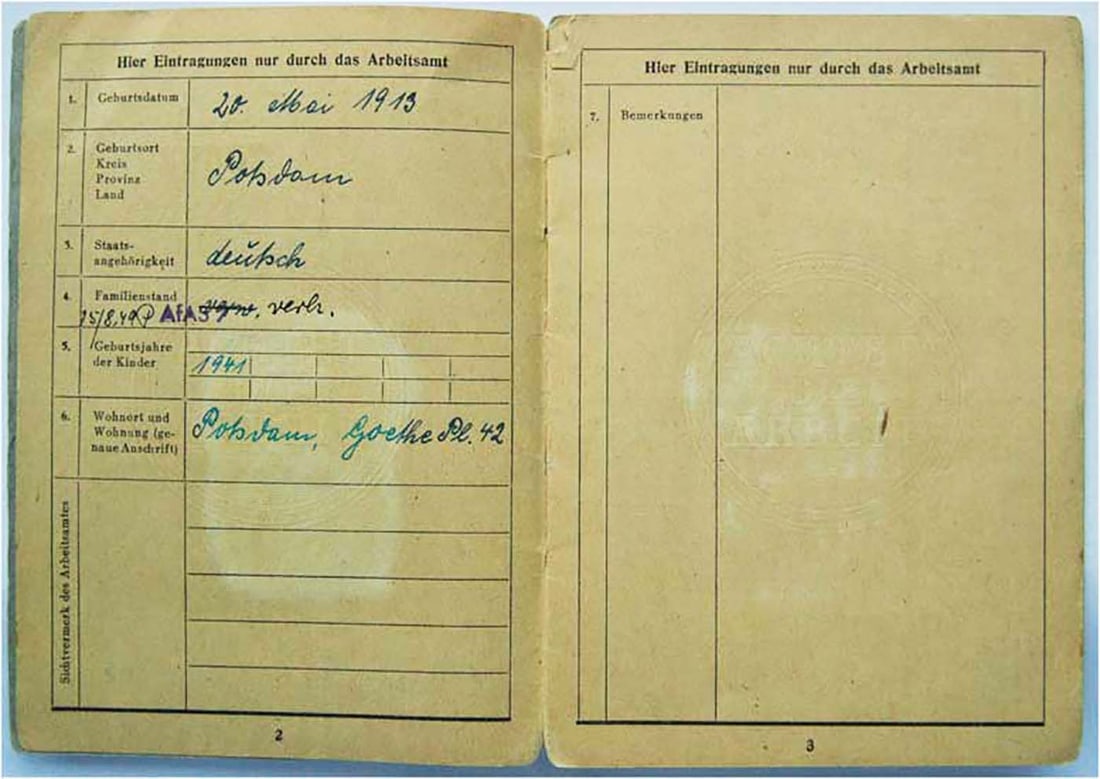 Hier Eintragungen nur durch das Arbeitsamt
1. Geburtsdatum 20. Mai 1913
2. Geburtsort
Kreis
Provinz
Land
Potsdam
3. Staats-
angehörigkeit
deutsch
4. Familienstand
verh.
15/8.49 AfAS
5. Geburtsjahre
der Kinder
1941
6. Wohnort und
Wohnung (ge-
naue Anschrift)
Potsdam, Goethe Pl. 42
Sichtvermerk des Arbeitsamtes
2
Hier Eintragungen nur durch das Arbeitsamt
7. Bemerkungen
3